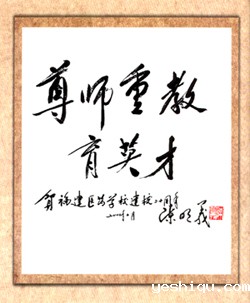 尊师重教
育英才
贺福建医药学校建校二十周年
陈明义
yeshiqu.com